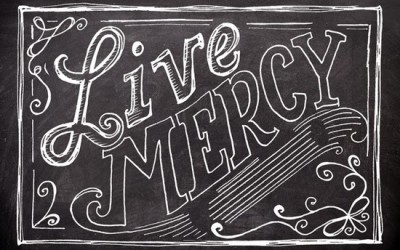 Live
MERCY